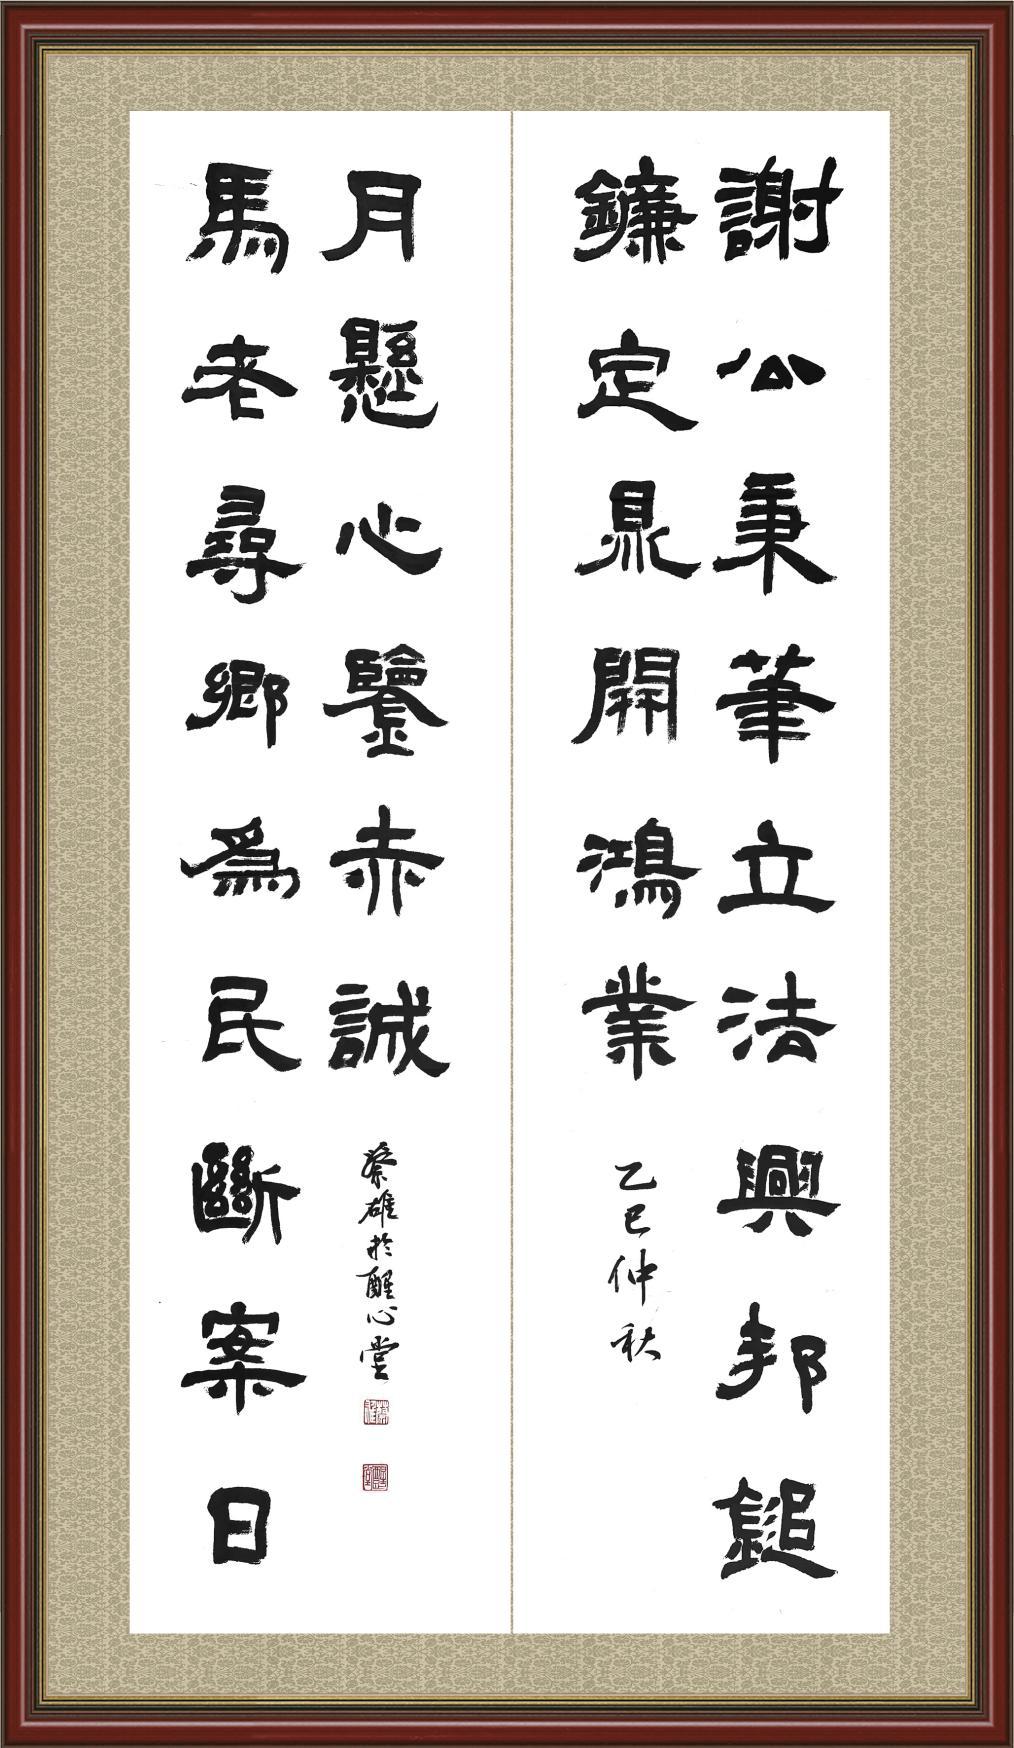 謝公秉筆立法興邦鎚
鐮定鼎開鴻業
乙巳仲秋
馬老尋鄉爲民斷案日
月懸心鑒赤誠
蔡雄於醒心堂